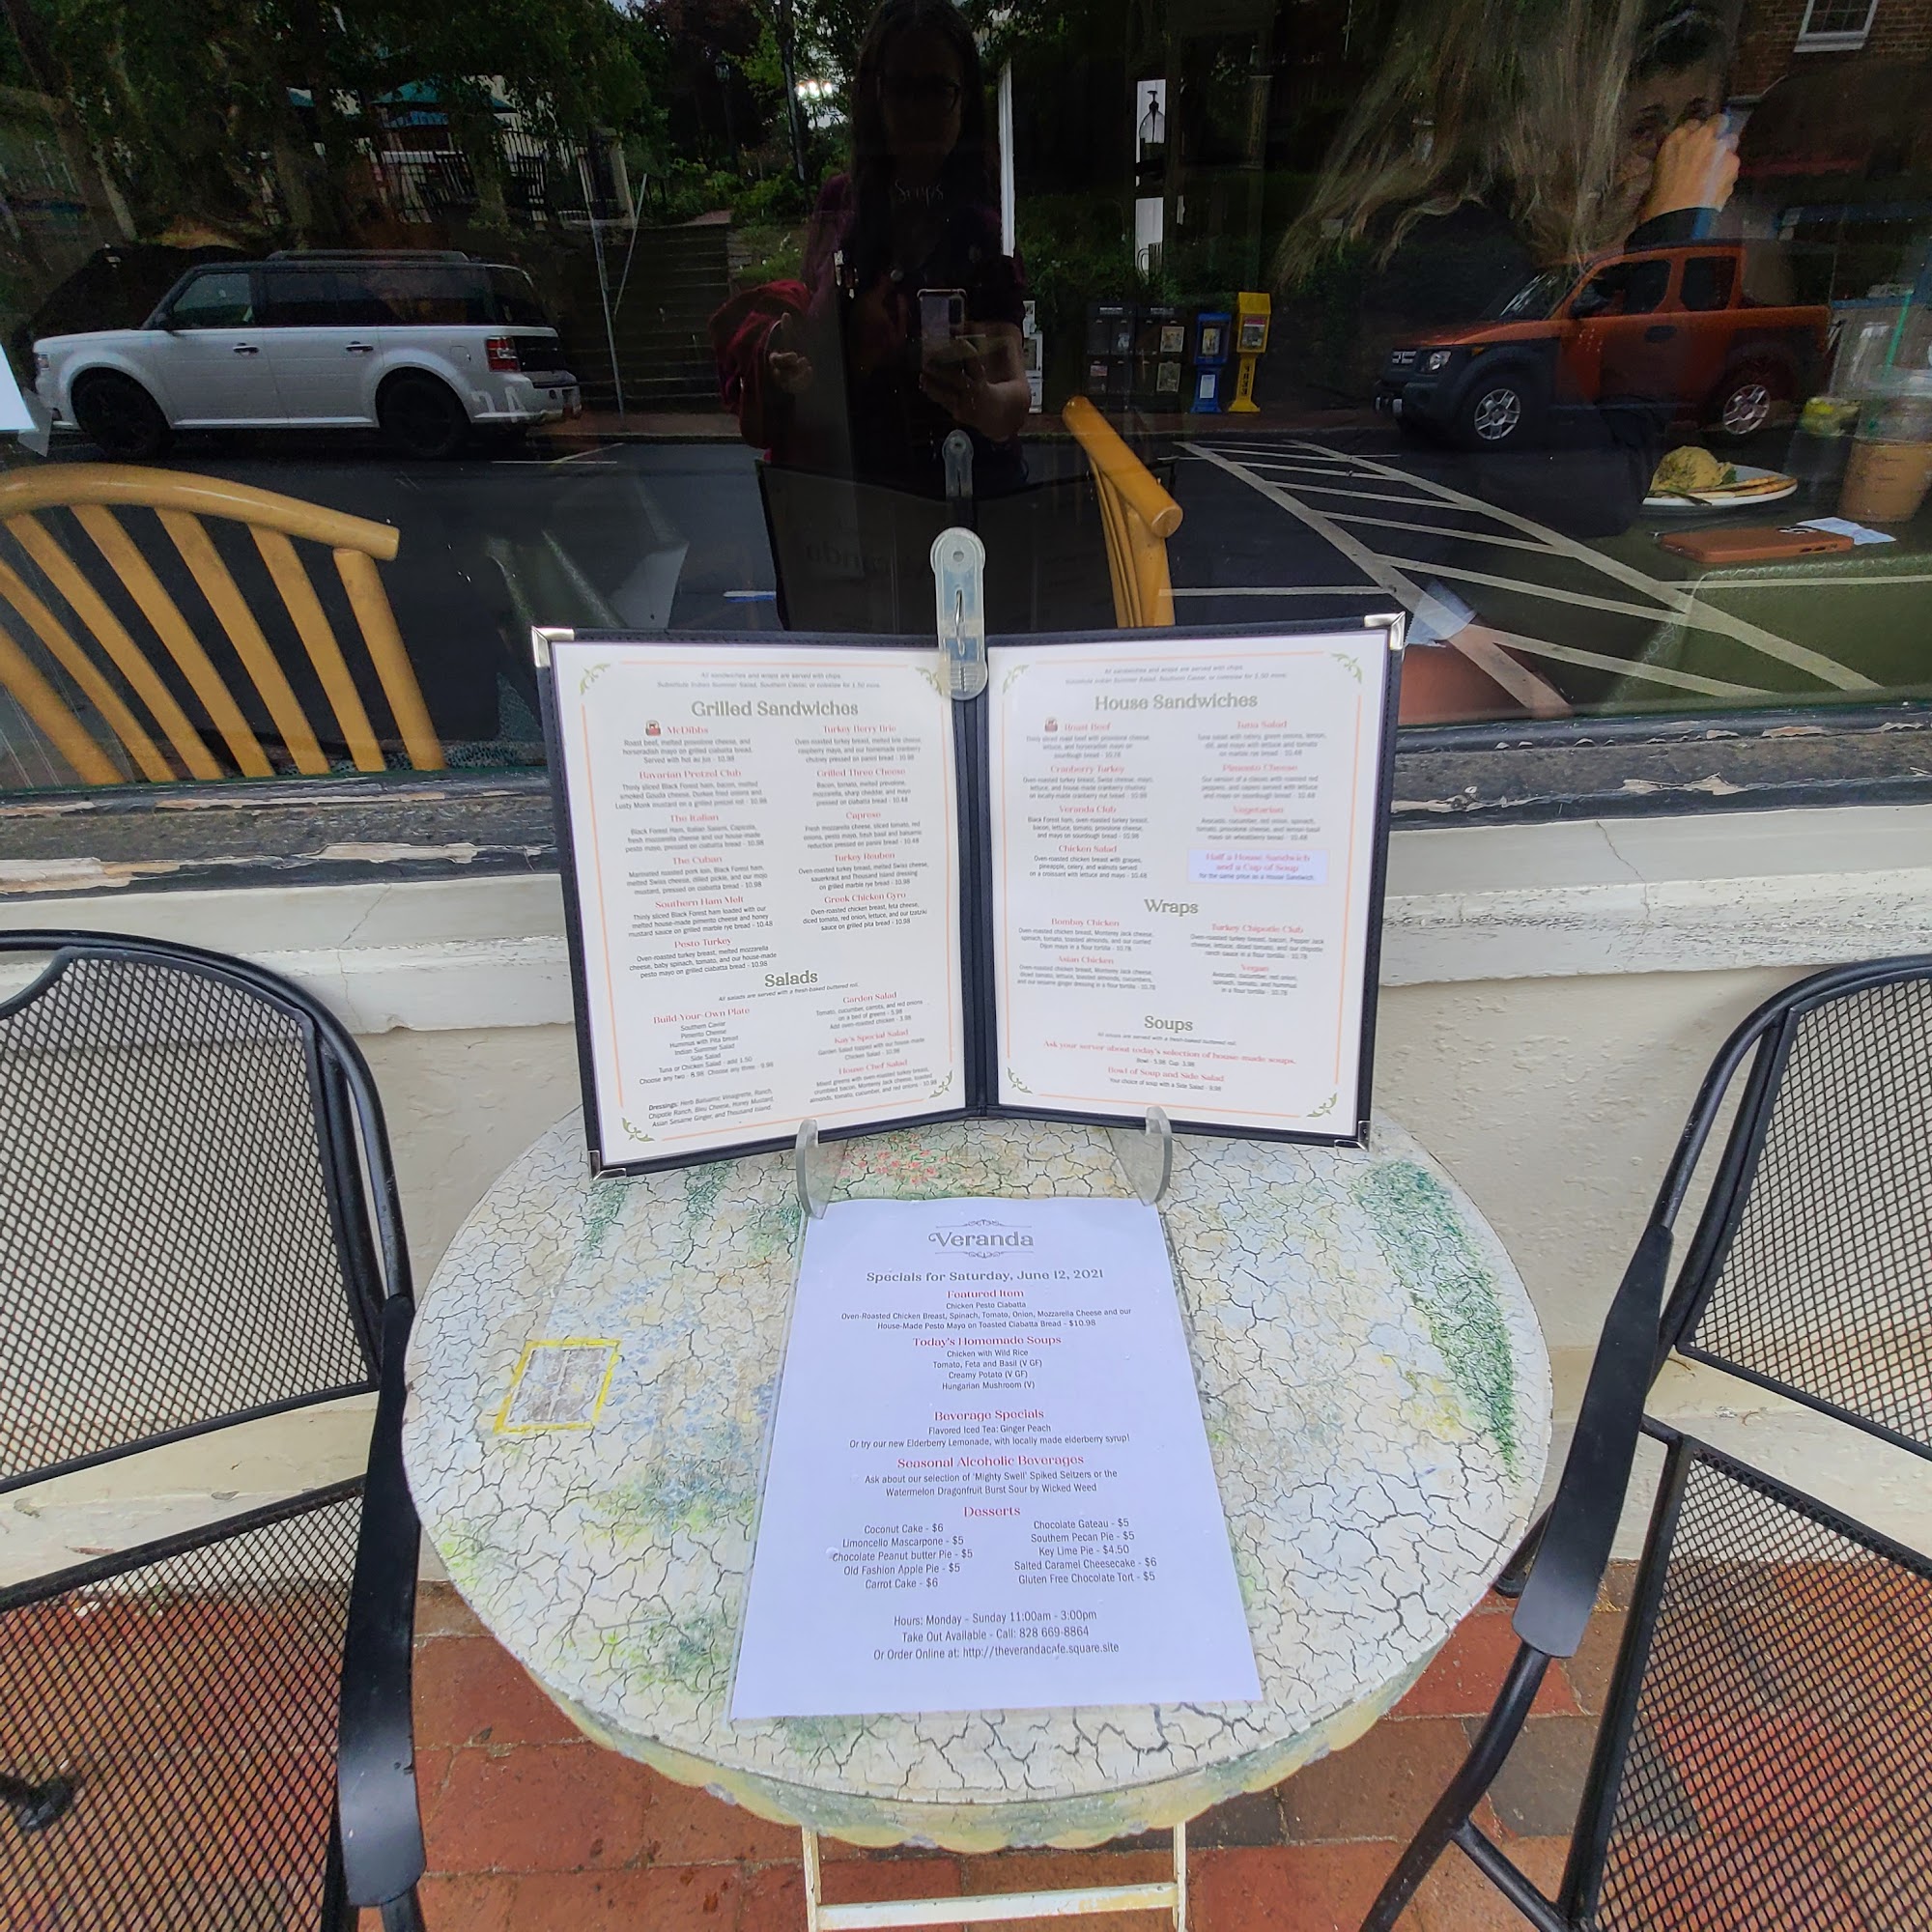 Soups
All sandwiches and wraps are served with chips.
Substitute Indian Summer Salad, Southern Caviar, or coleslaw for 1.50 more.
Grilled Sandwiches
McDibbs
Roast beef, melted provolone cheese, and
horseradish mayo on grilled ciabatta bread.
Served with hot au jus - 10.98
Bavarian Pretzel Club
Thinly sliced Black Forest ham, bacon, melted
smoked Gouda cheese, Durkee fried onions and
Lusty Monk mustard on a grilled pretzel roll - 10.98
The Italian
Black Forest Ham, Italian Salami, Capicola,
fresh mozzarella cheese and our house-made
pesto mayo, pressed on ciabatta bread - 10.98
The Cuban
Marinated roasted pork loin, Black Forest ham,
melted Swiss cheese, dilled pickle, and our mojo
mustard, pressed on ciabatta bread - 10.98
Southern Ham Melt
Thinly sliced Black Forest ham loaded with our
melted house-made pimento cheese and honey
mustard sauce on grilled marble rye bread - 10.48
Pesto Turkey
Oven-roasted turkey breast, melted mozzarella
cheese, baby spinach, tomato, and our house-made
pesto mayo on grilled ciabatta bread - 10.98
Turkey Berry Brie
Oven-roasted turkey breast, melted brie cheese,
raspberry mayo, and our homemade cranberry
chutney pressed on panini bread - 10.98
Grilled Three Cheese
Bacon, tomato, melted provolone,
mozzarella, sharp cheddar, and mayo
pressed on ciabatta bread - 10.48
Caprese
Fresh mozzarella cheese, sliced tomato, red
onions, pesto mayo, fresh basil and balsamic
reduction pressed on panini bread - 10.48
Turkey Reuben
Oven-roasted turkey breast, melted Swiss cheese,
sauerkraut and Thousand Island dressing
on grilled marble rye bread - 10.98
Greek Chicken Gyro
Oven-roasted chicken breast, feta cheese,
diced tomato, red onion, lettuce, and our tzatziki
sauce on grilled pita bread - 10.98
Salads
All salads are served with a fresh-baked buttered roll.
Build-Your-Own Plate
Southern Caviar
Pimento Cheese
Hummus with Pita bread
Indian Summer Salad
Side Salad
Tuna or Chicken Salad - add 1.50
Choose any two - 8.98 Choose any three - 9.98
Dressings: Herb Balsamic Vinaigrette, Ranch,
Chipotle Ranch, Bleu Cheese, Honey Mustard,
Asian Sesame Ginger, and Thousand Island.
Garden Salad
Tomato, cucumber, carrots, and red onions
on a bed of greens - 5.98
Add oven-roasted chicken - 3.98
Kay's Special Salad
Garden Salad topped with our house-made
Chicken Salad - 10.98
House Chef Salad
Mixed greens with oven-roasted turkey breast,
crumbled bacon, Monterey Jack cheese, toasted
almonds, tomato, cucumber, and red onions - 10.98
All sandwiches and wraps are served with chips.
Substitute Indian Summer Salad, Southern Caviar, or coleslaw for 1.50 more.
House Sandwiches
Roast Beef
Thinly sliced roast beef with provolone cheese,
lettuce, and horseradish mayo on
sourdough bread - 10.78
Cranberry Turkey
Oven-roasted turkey breast, Swiss cheese, mayo,
lettuce, and house made cranberry chutney
on locally-made cranberry nut bread - 10.98
Veranda Club
Black Forest ham, oven-roasted turkey breast,
bacon, lettuce, tomato, provolone cheese,
and mayo on sourdough bread - 10.98
Chicken Salad
Oven-roasted chicken breast with grapes,
pineapple, celery, and walnuts served
on a croissant with lettuce and mayo - 10.48
Tuna Salad
Tuna salad with celery, green onions, lemon,
dill, and mayo with lettuce and tomato
on marble rye bread - 10.48
Pimento Cheese
Our version of a classic with roasted red
peppers, and capers served with lettuce
and mayo on sourdough bread - 10.48
Vegetarian
Avocado, cucumber, red onion, spinach,
tomato, provolone cheese, and lemon-basil
mayo on wheatberry bread - 10.48
Half a House Sandwich
and a Cup of Soup
for the same price as a House Sandwich
Wraps
Bombay Chicken
Oven-roasted chicken breast, Monterey Jack cheese,
spinach, tomato, toasted almonds, and our curried
Dijon mayo in a flour tortilla - 10.78
Asian Chicken
Oven-roasted chicken breast, Monterey Jack cheese,
diced tomato, lettuce, toasted almonds, cucumbers,
and our sesame ginger dressing in a flour tortilla - 10.78
Turkey Chipotle Club
Oven-roasted turkey breast, bacon, Pepper Jack
cheese, lettuce, diced tomato, and our chipotle
ranch sauce in a flour tortilla - 10.78
Vegan
Avocado, cucumber, red onion,
spinach, tomato, and hummus
in a flour tortilla - 10.78
Soups
All soups are served with a fresh-baked buttered roll.
Ask your server about today's selection of house-made soups.
Bowl - 5.98 Cup - 3.98
Bowl of Soup and Side Salad
Your choice of soup with a Side Salad - 9.98
Veranda
Specials for Saturday, June 12, 2021
Featured Item
Chicken Pesto Ciabatta
Oven-Roasted Chicken Breast, Spinach, Tomato, Onion, Mozzarella Cheese and our
House-Made Pesto Mayo on Toasted Ciabatta Bread - $10.98
Today's Homemade Soups
Chicken with Wild Rice
Tomato, Feta and Basil (V GF)
Creamy Potato (V GF)
Hungarian Mushroom (V)
Beverage Specials
Flavored Iced Tea: Ginger Peach
Or try our new Elderberry Lemonade, with locally made elderberry syrup!
Seasonal Alcoholic Beverages
Ask about our selection of 'Mighty Swell' Spiked Seltzers or the
Watermelon Dragonfruit Burst Sour by Wicked Weed
Desserts
Coconut Cake - $6
Limoncello Mascarpone - $5
Chocolate Peanut butter Pie - $5
Old Fashion Apple Pie - $5
Carrot Cake - $6
Chocolate Gateau - $5
Southern Pecan Pie - $5
Key Lime Pie - $4.50
Salted Caramel Cheesecake - $6
Gluten Free Chocolate Tort - $5
Hours: Monday - Sunday 11:00am - 3:00pm
Take Out Available - Call: 828 669-8864
Or Order Online at: http://theverandacafe.square.site